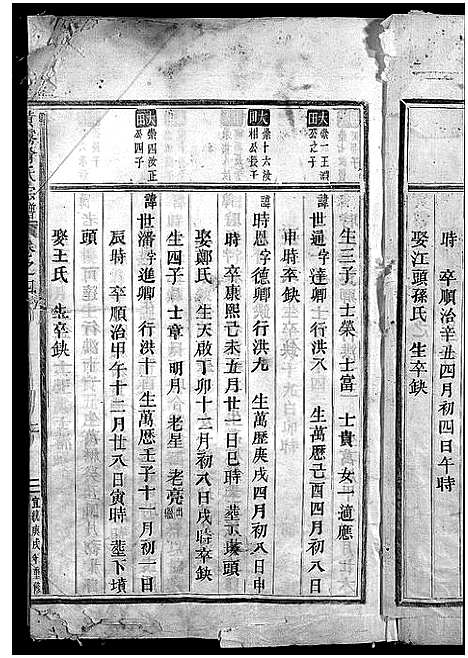 時 卒順治辛丑四月初四日午時
娶江頭孫氏 生卒缺
生三子 士榮 士富 士貴 女一適應
大田
崇一王
公之子
諱世通字達卿 行洪八 生萬曆己酉四月初八日
申時卒缺
大田
崇十六汝
相公長子
諱時恩字德卿 行洪九 生萬曆庚戌四月初八日申
時 卒康熙己未五月廿一日巳時 塟下墳頭
娶鄭氏 生天啟丁卯十二月初八日戌時卒缺
生四子 士章 明月 老星 老亮出繼
大田
崇四汝正
公四子
諱世潘字進卿 行洪十 生萬曆壬子十一月初一日
辰時 卒順治甲午十二月廿八日寅時 塟下墳
頭
娶王氏 生卒缺
氏宗譜 卷之四
宣統庚戌年重修